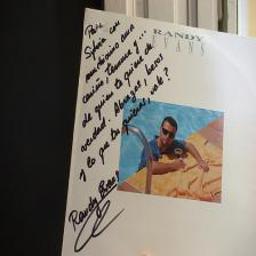 RANDY
EVANS
Para
Sylvia con
muchísimo amor
cariño, ternura y...
de quien te quiere de
verdad. Abrazos, besos
y lo que tú quieras, vale?
Randy Evans